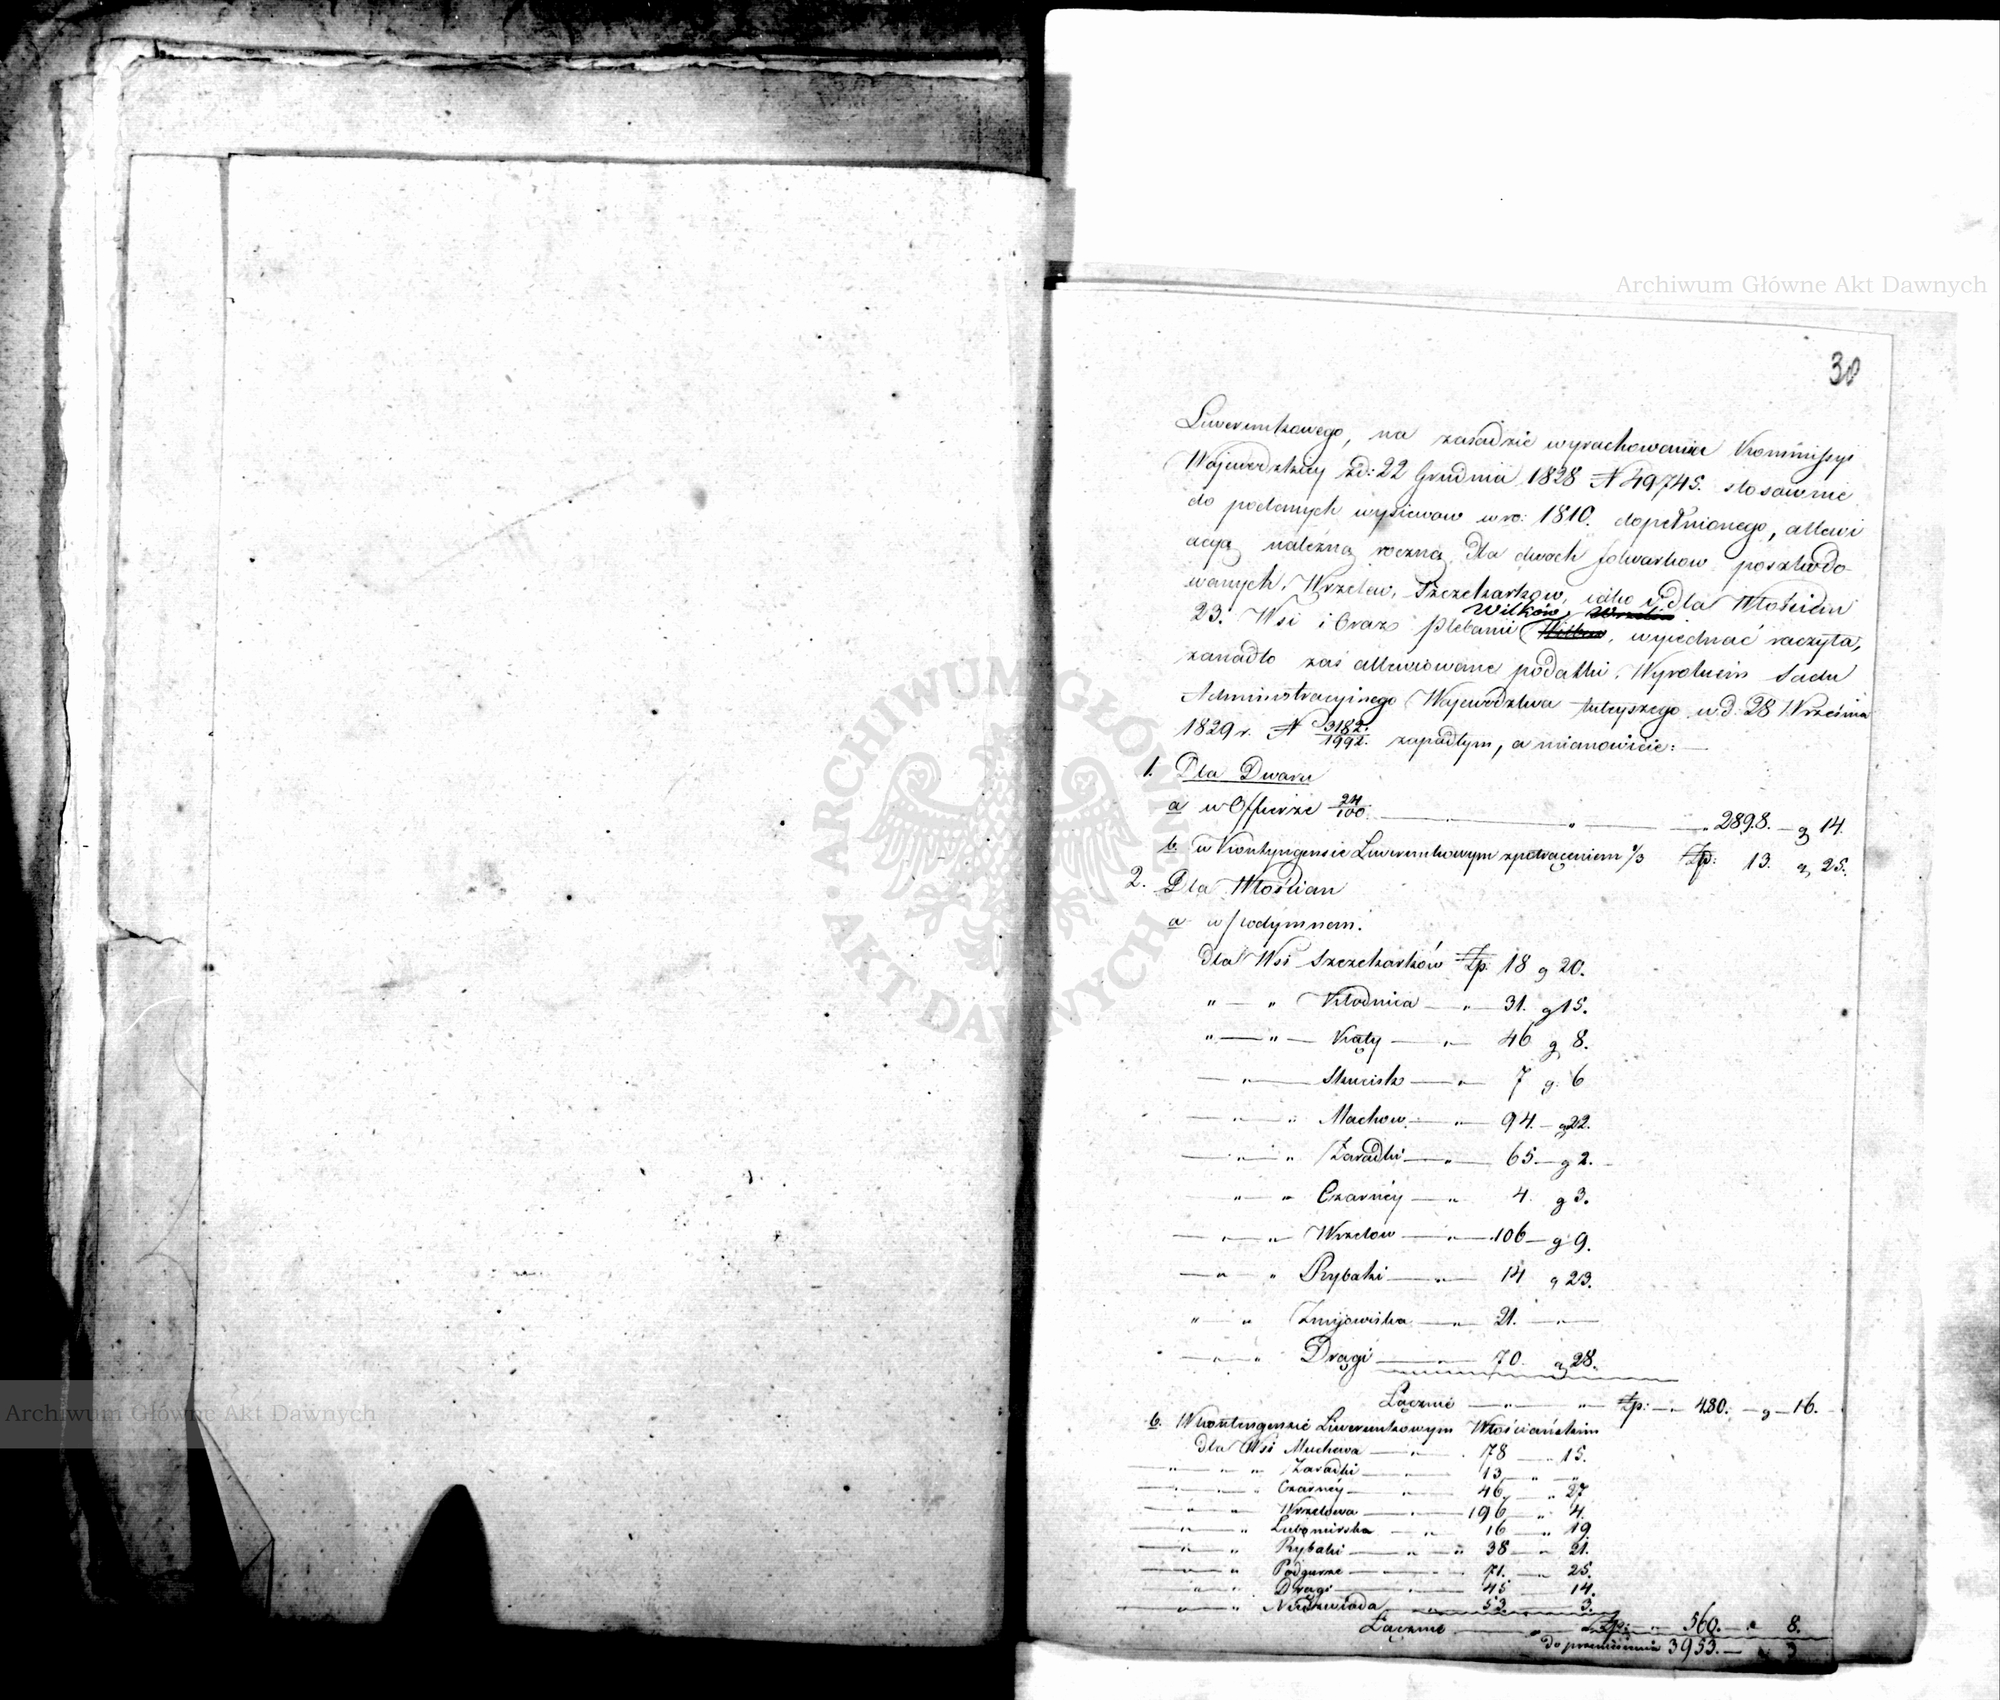 30
Liwerunkowego, na zasadzie wyrachowania Kommissyi
Wojewodzkiey zd: 22 Grudnia 1828 N 49745. stosownie
do podanych wysiewow w ro: 1810. dopełnionego, allewi
acyą należną roczną dla dwoch folwarkow poszkodo-
wanych, Wrzelow, Szczekarkow, jako i dla Włościan
23. Wsi i Oraz Plebanii Wilków, wyjednać raczyła,
zanadto zaś allewiowane podatki, Wyrokiem Sadu
Administracyjnego Wojewodztwa tuteyszego w d. 28 Września
1829 r. N 3182/1992. zapadłym, a mianowicie: —
1. Dla Dworu
a w Offierze 24/100 — " — " 2898. — g 14.
b. w Kontyngensie Liwerunkowym zpotrąceniem 1/3 Zp: 13. g 25.
2. Dla Włościan
a w Podymnem.
dla Wsi Szczekarków Zp. 18 g 20.
" — " Kłodnica — " — 31. g 15.
" — " — Kąty — " — 46 g 8.
— " — — " — 7 g. 6
— " — " Machow — " — 94. — g 22.
— " — " Zaradki — " — 65 — g 2.
" — " Czarney — " 4. g 3.
— " — " Wrzelow — " — 106 — g 9.
— " — " Rybaki — " — 14 g 23.
" — " Zmijowiska — " — 21. — " —
— " — " Drągi — " — 70. g 28.
Łącznie — " — " Zp: — " 480. — g — 16.
b. W kontengensie Liwerunkowym Włościańskim
dla Wsi Machowa — " — 78 — " 15.
— " — " Zaradki — " — 13 — " — "
— " — " Czarney — " — 46 — " 27
— " — " Wrzelowa — " — 196 — " 4.
— " — " Lubomirska — " 16 — " 19.
— " — " Rybaki — " — " 38 — " 21.
— " — " Podgurze — " — 71. — " 25.
— " — " Drągi — " — 45 — 14.
— " — " Niedzwiada — " — 53 — 3.
Łącznie — " — Zp: — " 560. — " 8.
do przeniesienia 3953. — " 3
Archiwum Główne Akt Dawnych
Archiwum Główne Akt Dawnych
ARCHIWUM GŁÓWNE AKT DAWNYCH